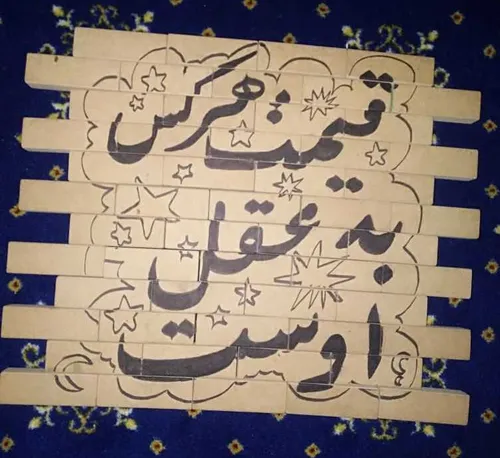 قیمت هرکس
به عقل
اوست